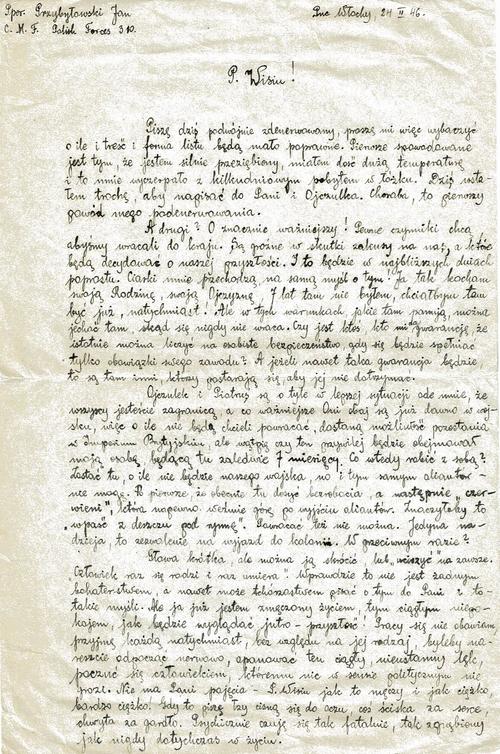 Ppor. Przybytowski Jan
C. M. F. Polish Forces 310.
Pne Włochy, 24 II 46.
P. Wisiu!
Piszę dziś podwójnie zdenerwowany, proszę mi więc wybaczyć
o ile i treść i forma listu będą mało poprawne. Pierwsze spowodowane
jest tym, że jestem silnie przeziębiony, miałem dość dużą temperaturę
i to mnie wyczerpało z kilkudniowym pobytem w łóżku. Dziś wsta-
łem trochę, aby napisać do Pani i Ojczulka. Choroba, to pierwszy
powód mego podenerwowania.
A drugi? O znacznie ważniejszy! Pewne czynniki chcą
abyśmy wracali do kraju. Są groźne w skutki zakusy na nas, a które
będą decydować o naszej przyszłości. I to będzie w najbliższych dniach
poprostu. Ciarki mnie przechodzą na samą myśl o tym! Ja tak kocham
swoją Rodzinę, swoją Ojczyznę, 7 lat tam nie byłem, chciałbym tam
być już, natychmiast. Ale w tych warunkach, jakie tam panują, można
jechać tam, skąd się nigdy nie wraca. Czy jest ktoś, kto mi gwarancję, że
istotnie można liczyć na osobiste bezpieczeństwo, gdy się będzie spełniać
tylko obowiązki swego zawodu? A jeżeli nawet taka gwarancja będzie,
to są tam inni, którzy postarają się, aby jej nie dotrzymać.
Ojczulek i Piotruś są o tyle w lepszej sytuacji ode mnie, że
wszyscy jesteście zagranicą, a co ważniejsze Oni obaj są już dawno w woj-
sku, więc o ile nie będą chcieli powracać, dostaną możliwość pozostania
w Imperium Brytyjskim, ale wątpię czy ten przywilej będzie obejmował
moją osobę będącą tu zaledwie 7 miesięcy. Co wtedy robić z sobą?
Zostać tu, o ile nie będzie naszego wojska, no i tym samym aliantów-
nie mogę. Po pierwsze, że obecnie tu dosyć bezrobocia, a następnie „czer-
wieni", która napewno weźmie górę po wyjściu aliantów. Znaczyłoby to
„wpaść z deszczu pod rynnę". Powracać też nie można. Jedyna na-
dzieja, to zezwolenie na wyjazd do kolonii. W przeciwnym razie?
Sława krótka, ale można ją skrócić, lub „uciszyć" na zawsze.
Człowiek raz się rodzi i raz umiera". Wprawdzie to nie jest żadnym
bohaterstwem, a nawet może tchórzostwem pisać o tym do Pani i to-
takie myśli. Ale ja już jestem zmęczony życiem, tym ciągłym niepo-
kojem, jak będzie wyglądać jutro - przyszłość. Pracy się nie obawiam
przyjmę każdą natychmiast, bez względu na jej rodzaj, byleby na-
reszcie odpocząć nerwowo, opanować ten ciągły, nieustanny lęk,
poczuć się człowiekiem, któremu nic w sensie politycznym nie
grozi. Nie ma Pani pojęcia - P. Wisiu jak to męczy i jak ciężko
bardzo ciężko. Gdy to piszę łzy cisną się do oczu, coś ściska za serce,
chwyta za gardło. Psychicznie czuję się tak fatalnie, tak zgnębiony
jak nigdy dotychczas w życiu.